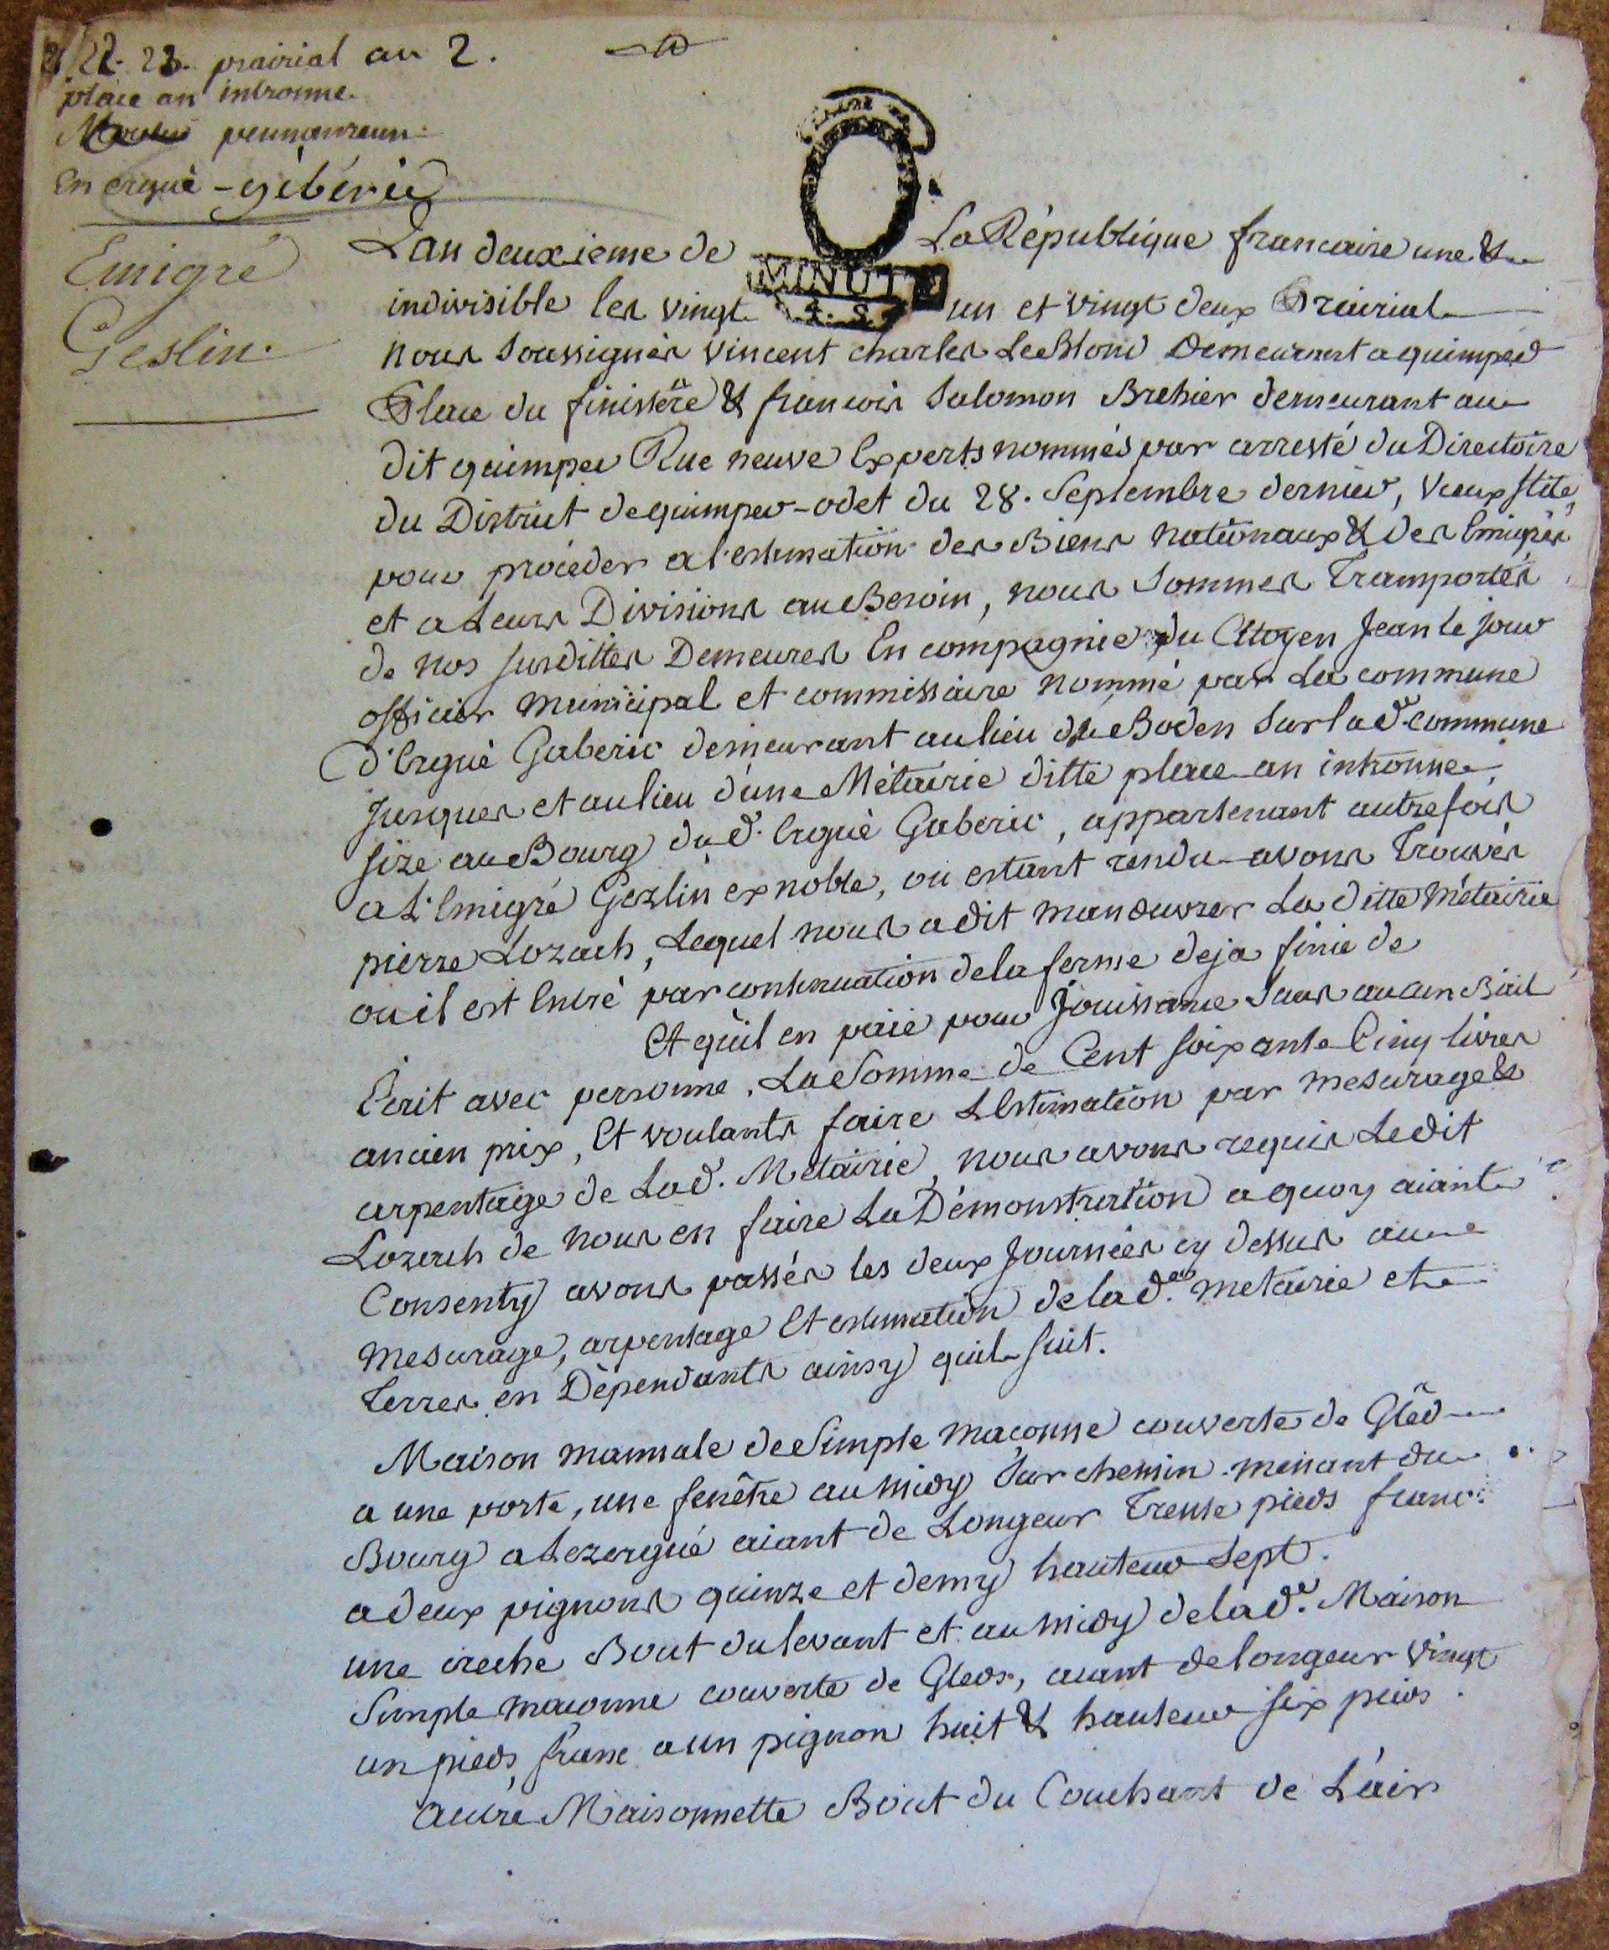 21. 22. 23. prairial an 2.
place an intronne.
pennanreun.
En ergué-gébéric
Emigré
Geslin.
MINUTE
4. S.
Lan deuxieme de La République francaise une &
indivisible les vingt un et vingt deux Prairial
nous soussignés vincent charles LeBlond Demeurant a quimper
Place du finistère & francois Salomon Brehier demeurant au
dit quimper Rue neuve Experts nommés par arresté du Directoire
du District de quimper-odet du 28. Septembre dernier, vieux stile,
pour procéder a l'estimation des Biens nationaux & des Emigrés
et a Leurs Divisions au Besoin, nous Sommes Transportés
de nos susdittes Demeures En compagnie du Citoyen Jean le jour
officier municipal et commissaire nommé par La commune
d'Ergué Gaberic demeurant au lieu du Boden Sur la de. commune
Jusques et au lieu d'une Métairie ditte place an intronne,
size au Bourg du d. Ergué Gaberic, appartenant autrefois
a L'Emigré Gezlin ex noble, ou estant rendu avons Trouvés
pierre Lozach, Lequel nous a dit manœuvrer La ditte Métairie
ou il est Entré par continuation de la ferme deja finie de
Et qu'il en paie pour Jouissance Sans aucun Bail
Ecrit avec personne, La Somme de Cent soixante Cinq livres
ancien prix, Et voulants faire L'Estimation par mesurage &
arpentage de La d. Métairie, nous avons requis Le dit
Lozach de nous en faire La Démonstration a quoy aiant
Consenty avons passés les deux Journées cy dessus au
mesurage, arpentage Et estimation de la de. metairie et
terres en Dépendants ainsy quil suit.
Maison mannale de Simple maçonne couverte de Gled
a une porte, une fenêtre au midy Sur chemin menant du
Bourg a Lezergué aiant de Longeur Trente pieds franc
a deux pignons quinze et demy hauteur Sept.
une creche Bout du levant et au midy de la de. Maison
Simple maconne couverte de Gleds, aiant de longeur vingt
un pieds franc a un pignon huit & hauteur six pieds.
autre Maisonnette Bout du Couchant de L'air